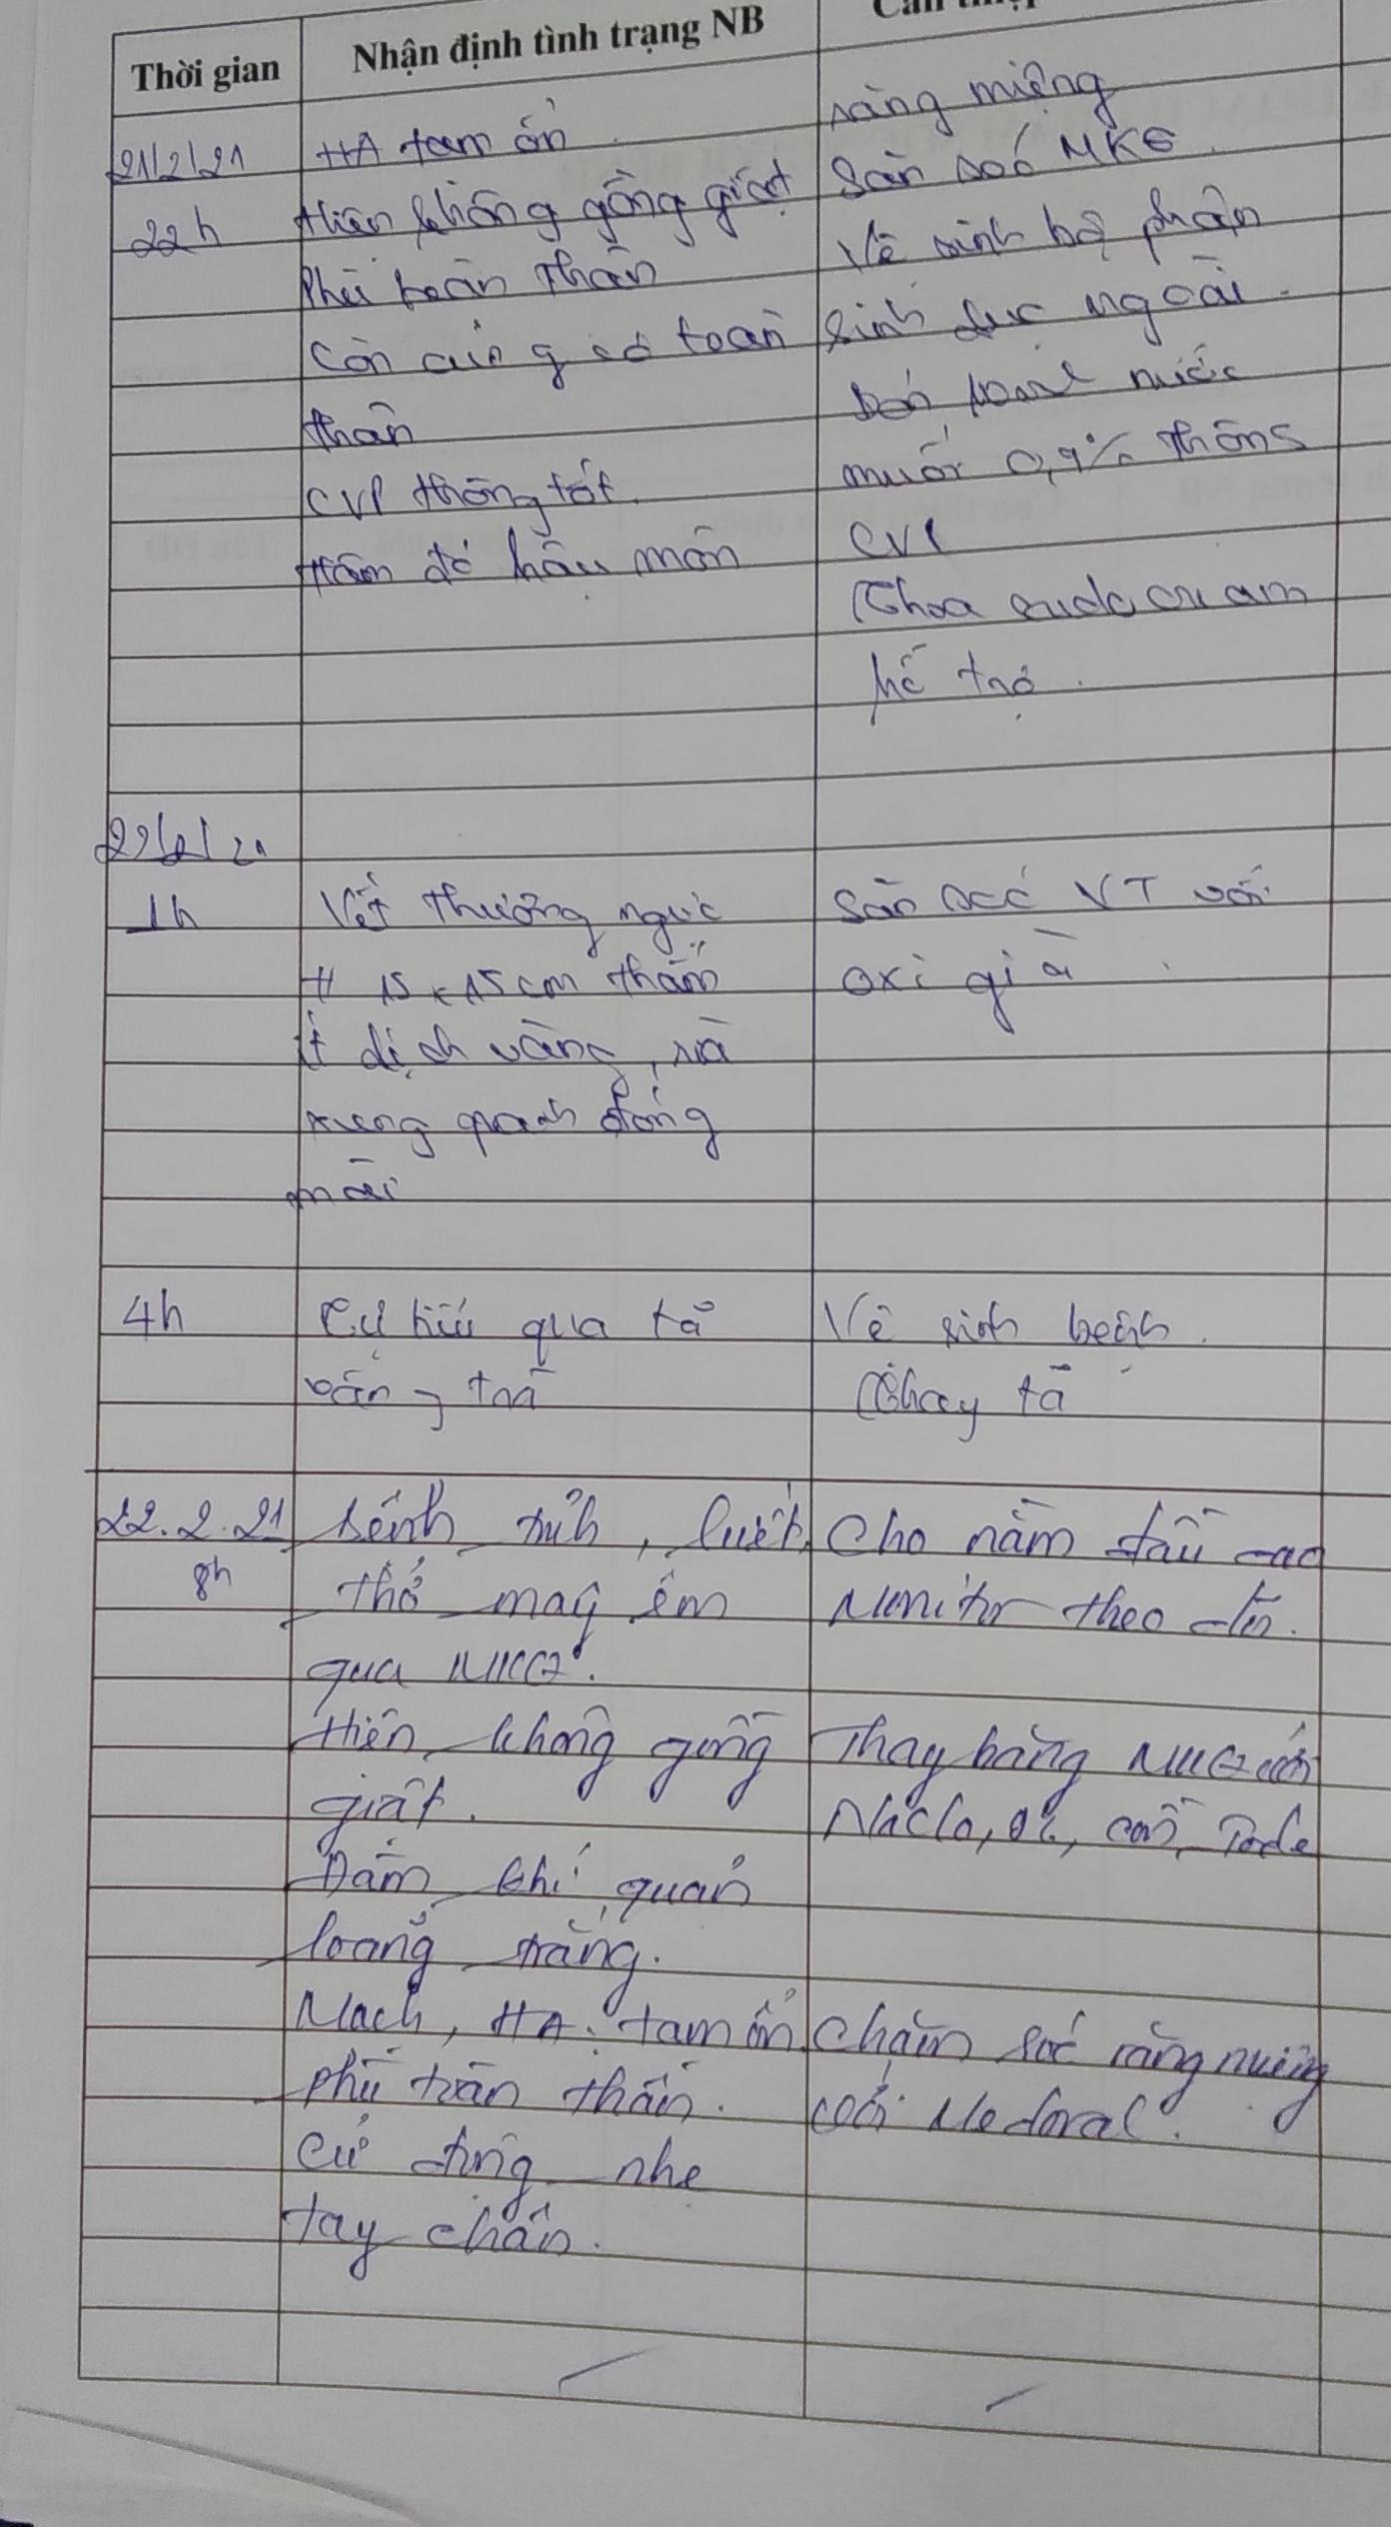 Thời gian
Nhận định tình trạng NB
21/2/21
22h
HA tạm ổn.
Hiện không gồng giật
Phù toàn thân
Còn cứng cơ toàn
thân
CVP thông tốt.
Hăm đỏ hậu môn
răng miệng
Săn sóc MKQ.
Vệ sinh bộ phận
sinh dục ngoài.
nước
muối 0,9% thông
CVP
Thoa
hỗ trợ.
22/2/21
1h
Vết thương ngực
# 15 x 15 cm thấm
ít dịch vàng, rìa
xung quanh đóng
mài
Săn sóc VT với
oxi già
4h
qua tã
vàng
Vệ sinh bệnh.
Thay tã
22.2.21
8h
Bệnh tỉnh,
thở máy êm
qua MKQ.
Hiện không gồng
giật.
Đàm khí quản
loãng trắng.
Mạch, HA: tạm ổn.
phù toàn thân.
Cử động nhẹ
tay chân.
Cho nằm đầu cao
Monitor theo dõi.
Thay băng MKQ với
NaCl 0,9%, cồn
Chăm sóc răng miệng
với Medoral.